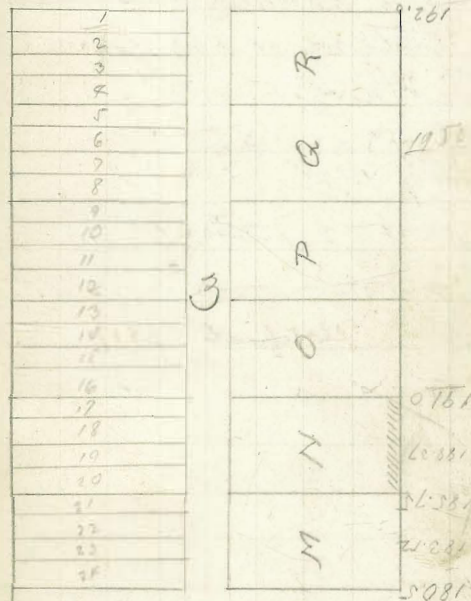 1
2
3
4
5
6
7
8
9
10
11
12
13
14
15
16
17
18
19
20
21
22
23
24
3
R
Q
P
O
N
M
192.
191.0
185.75
183.12
180.5